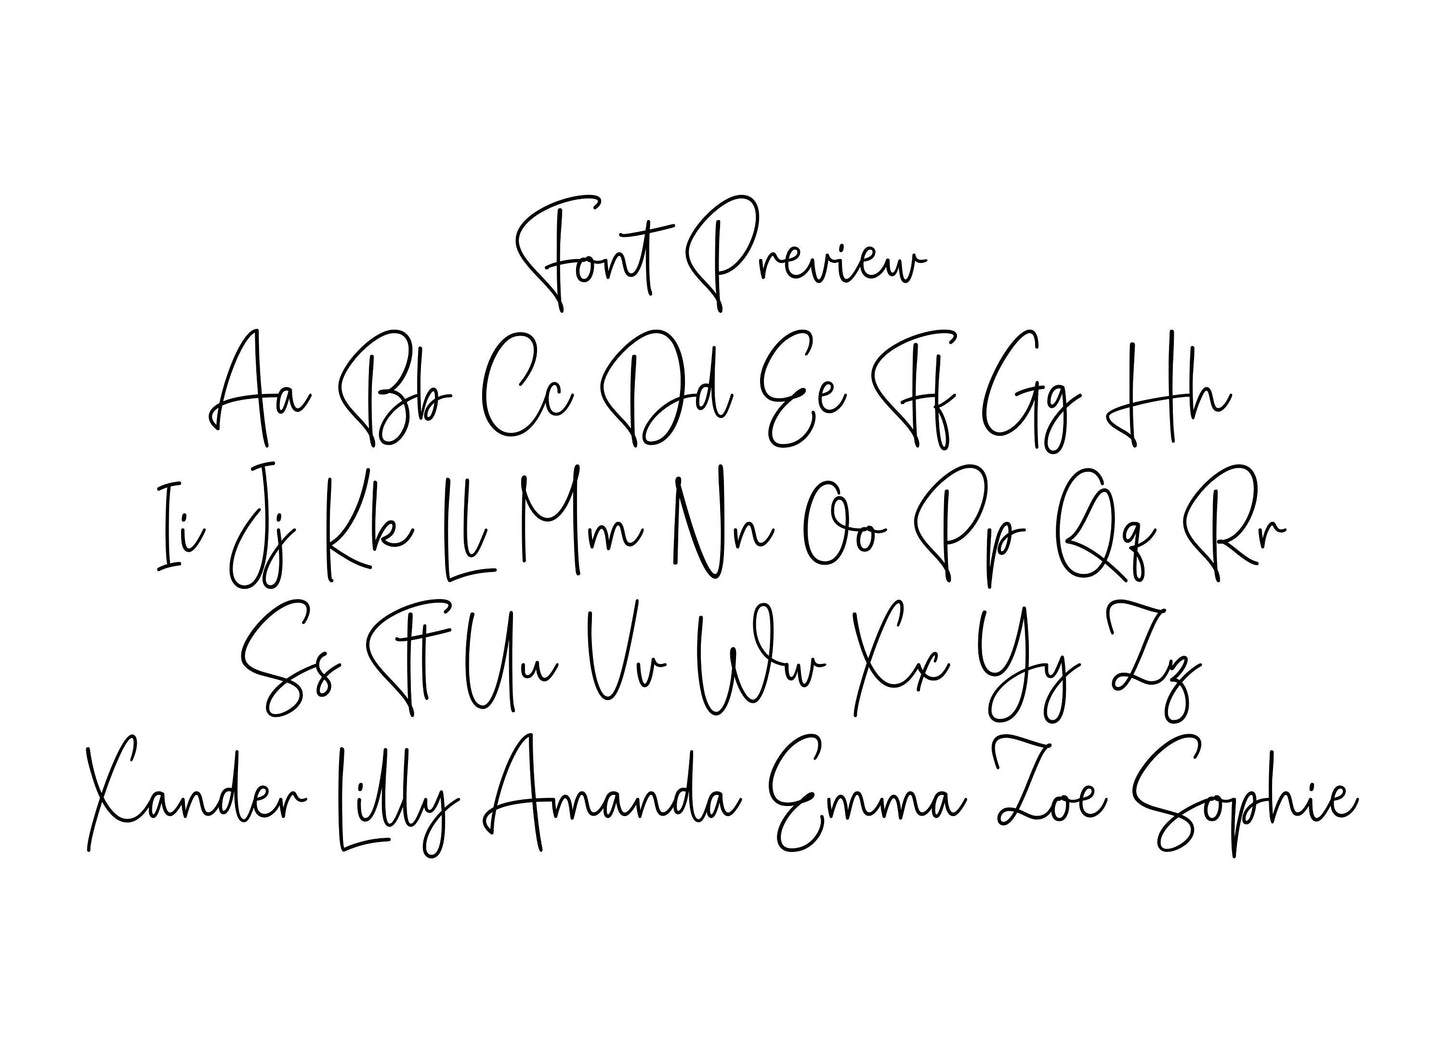 Font Preview
Aa Bb Cc Dd Ee Ff Gg Hh
Ii Jj Kk Ll Mm Nn Oo Pp Qq Rr
Ss Tt Uu Vv Ww Xx Yy Zz
Xander Lilly Amanda Emma Zoe Sophie